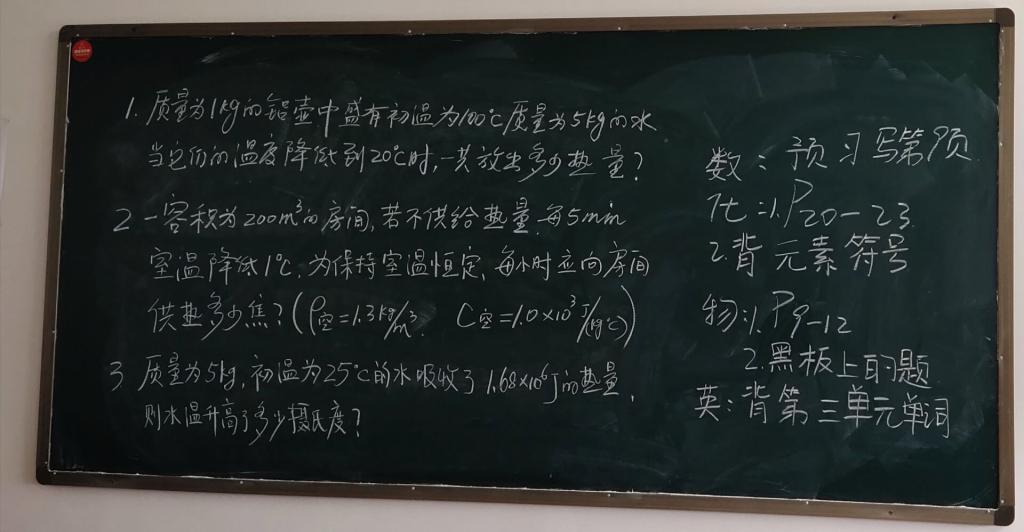 1. 质量为1kg的铝壶中盛有初温为100℃质量为5kg的水
当它们的温度降低到20℃时,一共放出多少热量?
2 一容积为200m³的房间,若不供给热量,每5min
室温降低1℃,为保持室温恒定,每小时应向房间
供热多少焦?(ρ空=1.3kg/m³. C空=1.0×10³J/(kg℃))
3 质量为5kg,初温为25℃的水吸收了1.68×10⁶J的热量,
则水温升高了多少摄氏度?
数:预习写第9页
化:1.P20-23
2.背元素符号
物:1.P9-12
2.黑板上的题
英:背第三单元单词